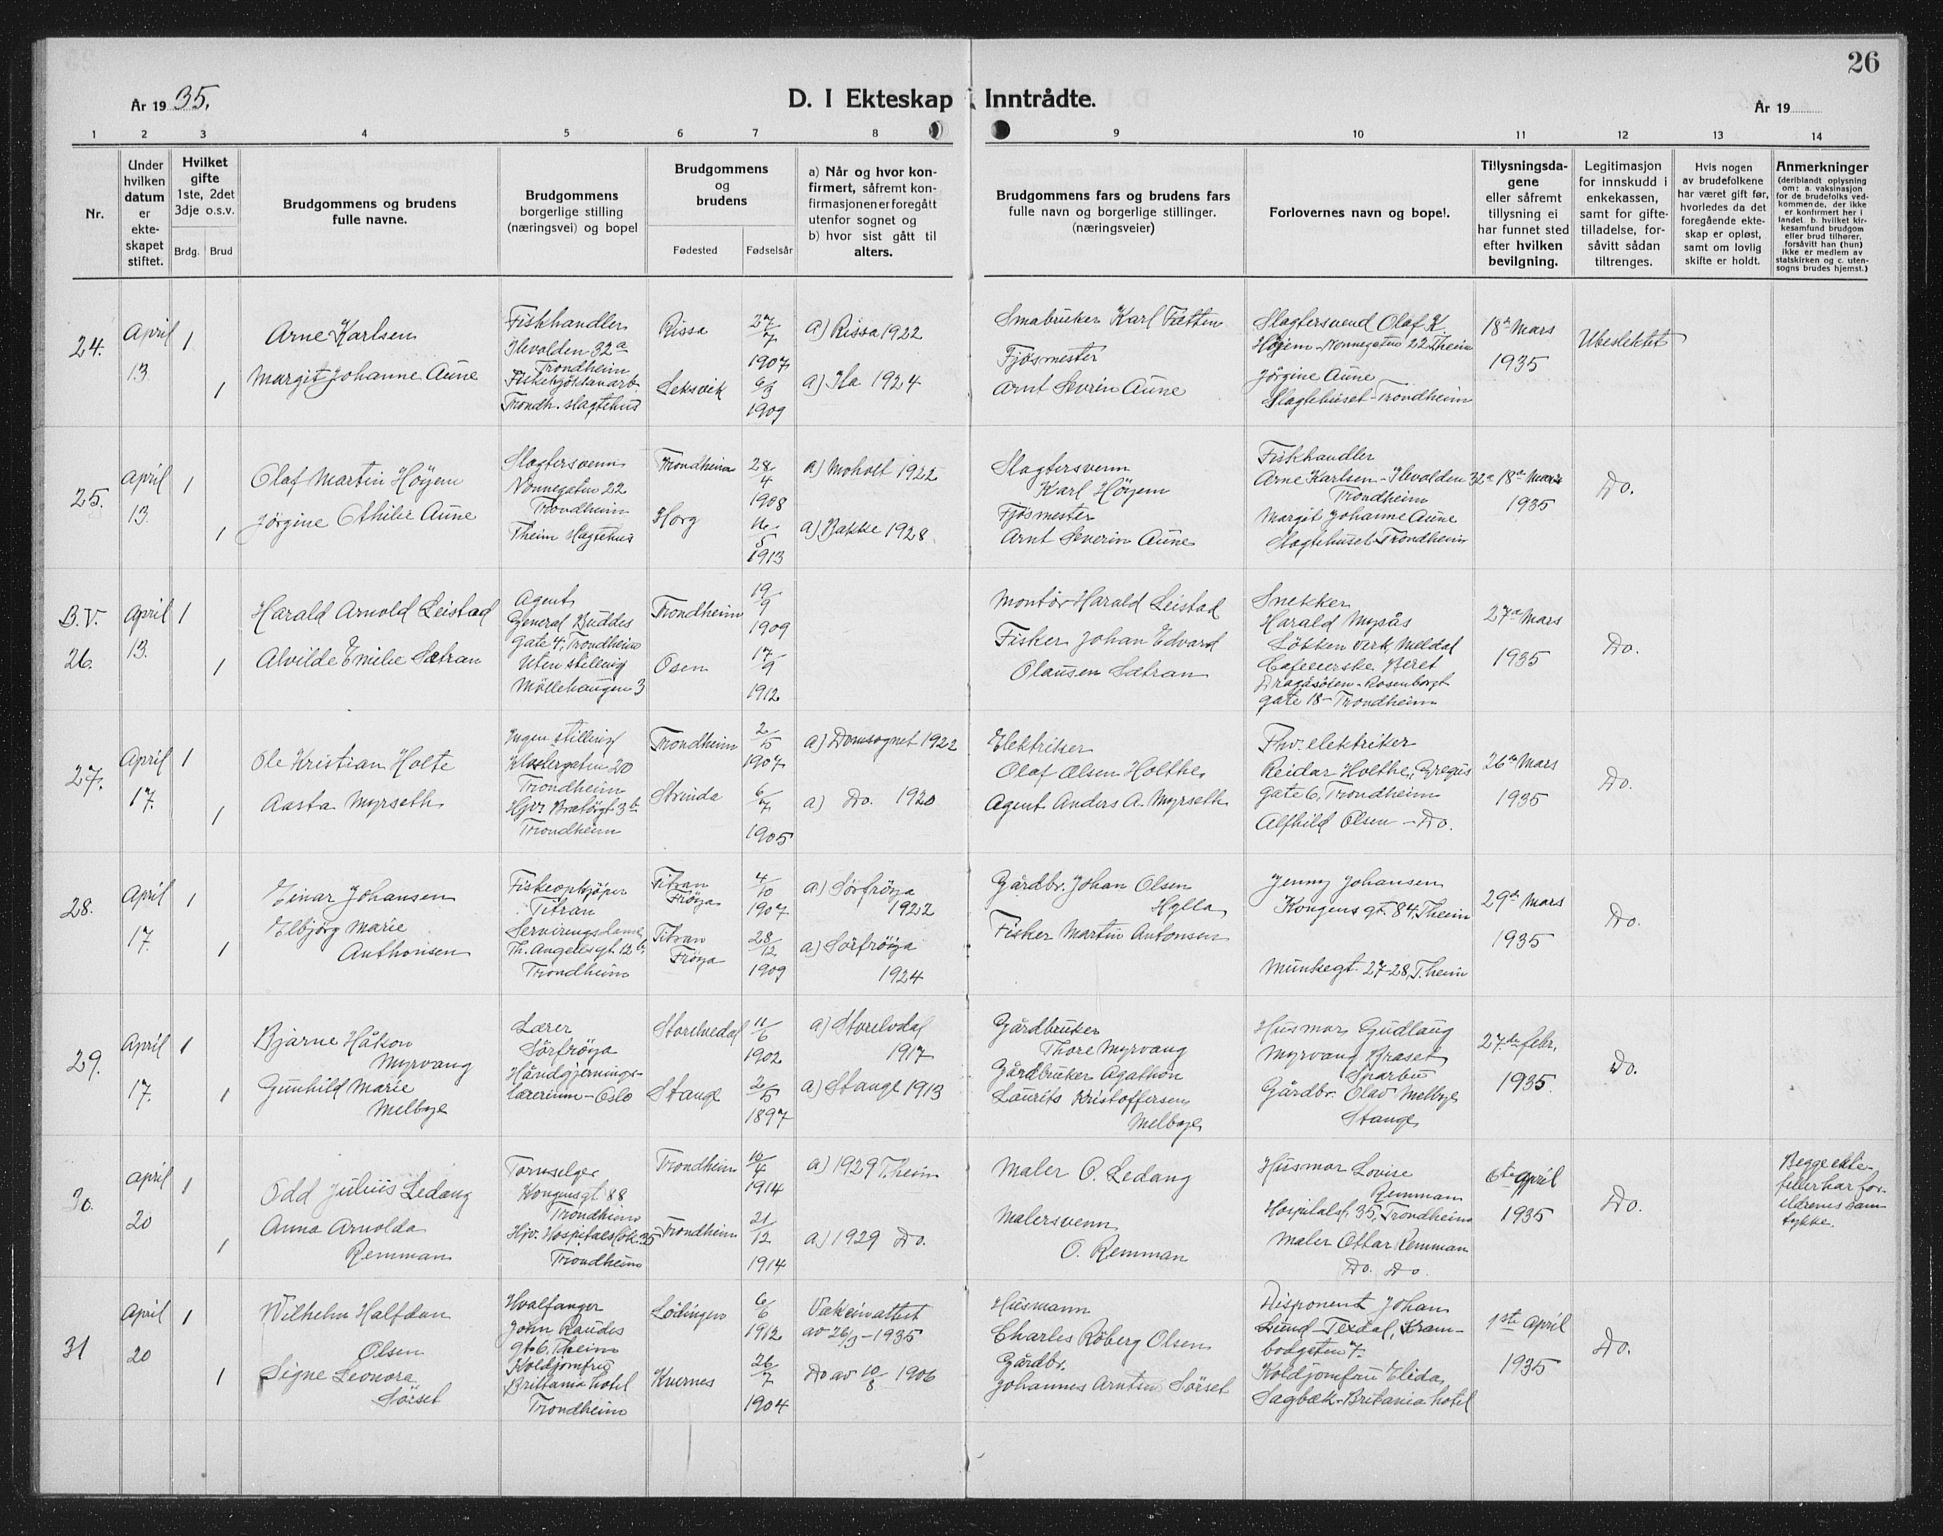 26
År 19 35.
D. I Ekteskap Inntrådte.
År 19
1 2 3 4 5 6 7 8 9 10 11 12 13 14
Nr.
Under hvilken datum er ekteskapet stiftet.
Hvilket gifte 1ste, 2det 3dje o.s.v.
Brdg. Brud
Brudgommens og brudens fulle navne.
Brudgommens borgerlige stilling (næringsvei) og bopel
Brudgommens og brudens
Fødested Fødselsår
a) Når og hvor konfirmert, såfremt konfirmasjonen er foregått utenfor sognet og
b) hvor sist gått til alters.
Brudgommens fars og brudens fars fulle navn og borgerlige stillinger. (næringsveier)
Forlovernes navn og bopel.
Tillysningsdagene eller såfremt tillysning ei har funnet sted efter hvilken bevilgning.
Legitimasjon for innskudd i enkekassen, samt for giftetilladelse, forsåvitt sådan tiltrenges.
Hvis nogen av brudefolkene har været gift før, hvorledes da det foregående ekteskap er opløst, samt om lovlig skifte er holdt.
Anmerkninger (deriblandt oplysning om: a. vaksinasjon for de brudefolks vedkommende, der ikke er konfirmert her i landet. b. hvilket kirkesamfund brudgom eller brud tilhører, forsåvitt han (hun) ikke er medlem av statskirken og c. utensogns brudes hjemst.)
24.
April 13
1
1
Arne Karlsen
Margit Johanne Aune
Fiskhandler
Ilevolden 32a
Trondheim
Trondh. slagtehus
Rissa
27/7 1907
Leksvik
6/3 1909
a) Rissa 1922
a) Ila 1924
Småbruker Karl Fætten
Fjøsmester
Arnt Severin Aune
Slagtersvend Olaf K.
Høyem - Nonnegaten 22 Theim
Jörgine Aune
Slagtehuset - Trondheim
18de Mars
1935
Ubeslektet
25.
April 13.
1
1
Olaf Martin Höyem
Jörgine Othilie Aune
Slagtersvenn
Nonnegaten 22
Trondheim
Theim Slagtehus
Trondheim
28/4 1908
Horg
16/5 1913
a) Moholt 1922
a) Bakke 1928.
Slagtersvenn
Karl Höyem
Fjösmester
Arnt Severin Aune
Fiskhandler
Arne Karlsen - Ilevolden 32a
Trondheim
Margit Johanne Aune
Slagtehuset - Trondheim
18de Mars
1935
Do.
B.V.
26.
April 13.
1
1
Harald Arnold Leistad
Alvilde Emilie Sætran
Agent
General Buddes
gate 4, Trondheim
Uten stilling
Möllehaugen 3
Trondheim
19/9 1909
Osen
17/9 1912
Montør Harald Leistad
Fisker Johan Edvard
Olausen Sætran
Snekker
Harald Mysås
Løkken Verk, Meldal
Cafeeierske Beret
Dragåsen - Rosenborgt
gate 18 - Trondheim
27de Mars
1935
Do.
27.
April 17.
1
1
Ole Kristian Holte
Aasta Myrseth
Ingen stilling
Klostergaten 20
Trondheim
Hjv. Bratörgt 3b
Trondheim
Trondheim
2/5 1907
Strinda
6/7 1905
a) Domsognet 1922
a) Do. 1920
Elektriker
Olaf Olsen Holthe
Agent Anders A. Myrseth
Fhv. elektriker
Reidar Holthe, Gregus
gate 6, Trondheim
Alfhild Olsen - Do.
26de Mars
1935
Do.
28.
April 17.
1
1
Einar Johansen
Elbjörg Marie
Anthonisen
Fiskeopkjöper
Titran
Serveringsdame
Th. Angelsgt. 12b,
Trondheim
Titran
Fröya
4/10 1907
Titran
Fröya
28/12 1909
a) Sörfröya
1922
a) Sörfröya
1924
Gårdbr. Johan Olsen
Hylla
Fisker Martin Antonsen
Jenny Johansen
Kongensgt. 84, Theim
Munkegt. 27-28, T.heim
29de Mars
1935
Do.
29.
April 17.
1
1
Bjarne Håkon
Myrvang
Gunhild Marie
Melbye
Lærer
Sörfröya
Håndgjernings-
lærerinne - Oslo
Storelvedal
11/6 1902
Stange
2/5 1897
a) Storelvdal
1917
a) Stange 1913
Gårdbruker
Thore Myrvang
Gårdbruker Agathon
Laurits Kristoffersen
Melbye
Husmor Gudlaug
Myrvang Braset
Sparbu
Gårdbr. Olav Melbye
Stange
27de febr.
1935.
Do.
30.
April 20
1
1
Odd Julius Ledang
Anna Arnolda
Remman
Tornselger
Kongensgt 88
Trondheim
Hjv. Hospitalsløk. 35
Trondheim
Trondheim
10/4 1914
Trondheim
21/12 1914
a) 1929 T.heim
a) 1929 Do.
Maler O. Ledang
Malersvenn
O. Remman
Husmor Lovise
Remman
Hospitalsl. 35, Trondheim
Maler Ottar Remman
Do. Do.
6te April
1935
Do.
Begge ekte-
feller har for-
eldrenes sam
tykke.
31
April 20
1
1
Wilhelm Halfdan
Olsen
Signe Leonora
Sörset
Hvalfanger
John Raudes
gt 6. Theim
Koldjomfru
Brittania hotel
Trondheim
Lødingen
6/6 1912
Kvernes
26/7 1904
Vaksinattest
av 26/3 - 1935
Do av 10/8 1906
Husmann
Charles Röberg Olsen
Gårdbr.
Johannes Arntsen Sörset
Disponent Johan
Lund - Texdal, Kram-
bodgaten 7.
Koldjomfru Elida
Sagbæk - Britania hotel
1ste April
1935
Do.